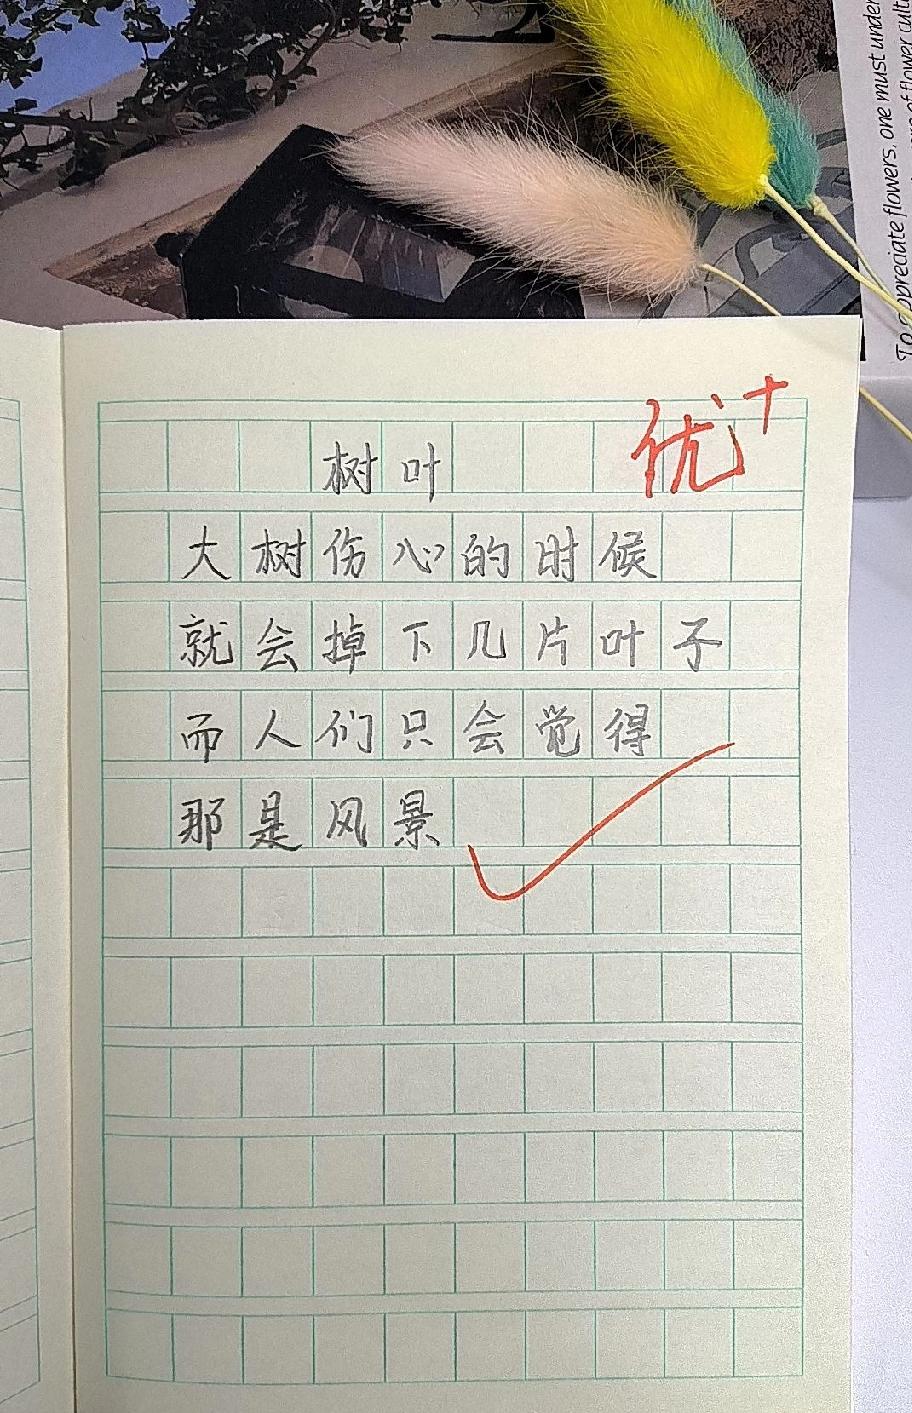 To appreciate flowers, one must under
of flower cultu
优+
树叶
大树伤心的时候
就会掉下几片叶子
而人们只会觉得
那是风景